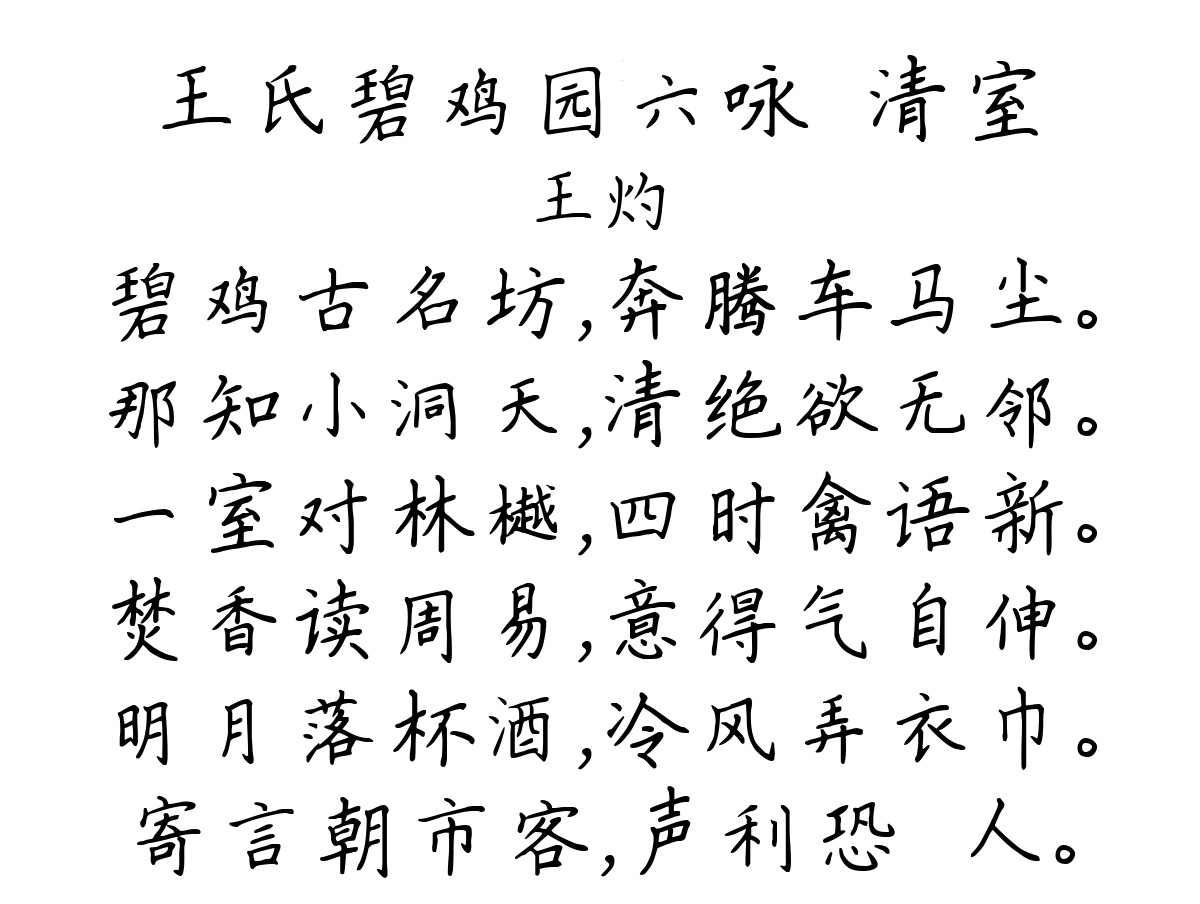 王氏碧鸡园六咏 清室
王灼
碧鸡古名坊,奔腾车马尘。
那知小洞天,清绝欲无邻。
一室对林樾,四时禽语新。
焚香读周易,意得气自伸。
明月落杯酒,冷风弄衣巾。
寄言朝市客,声利恐 人。